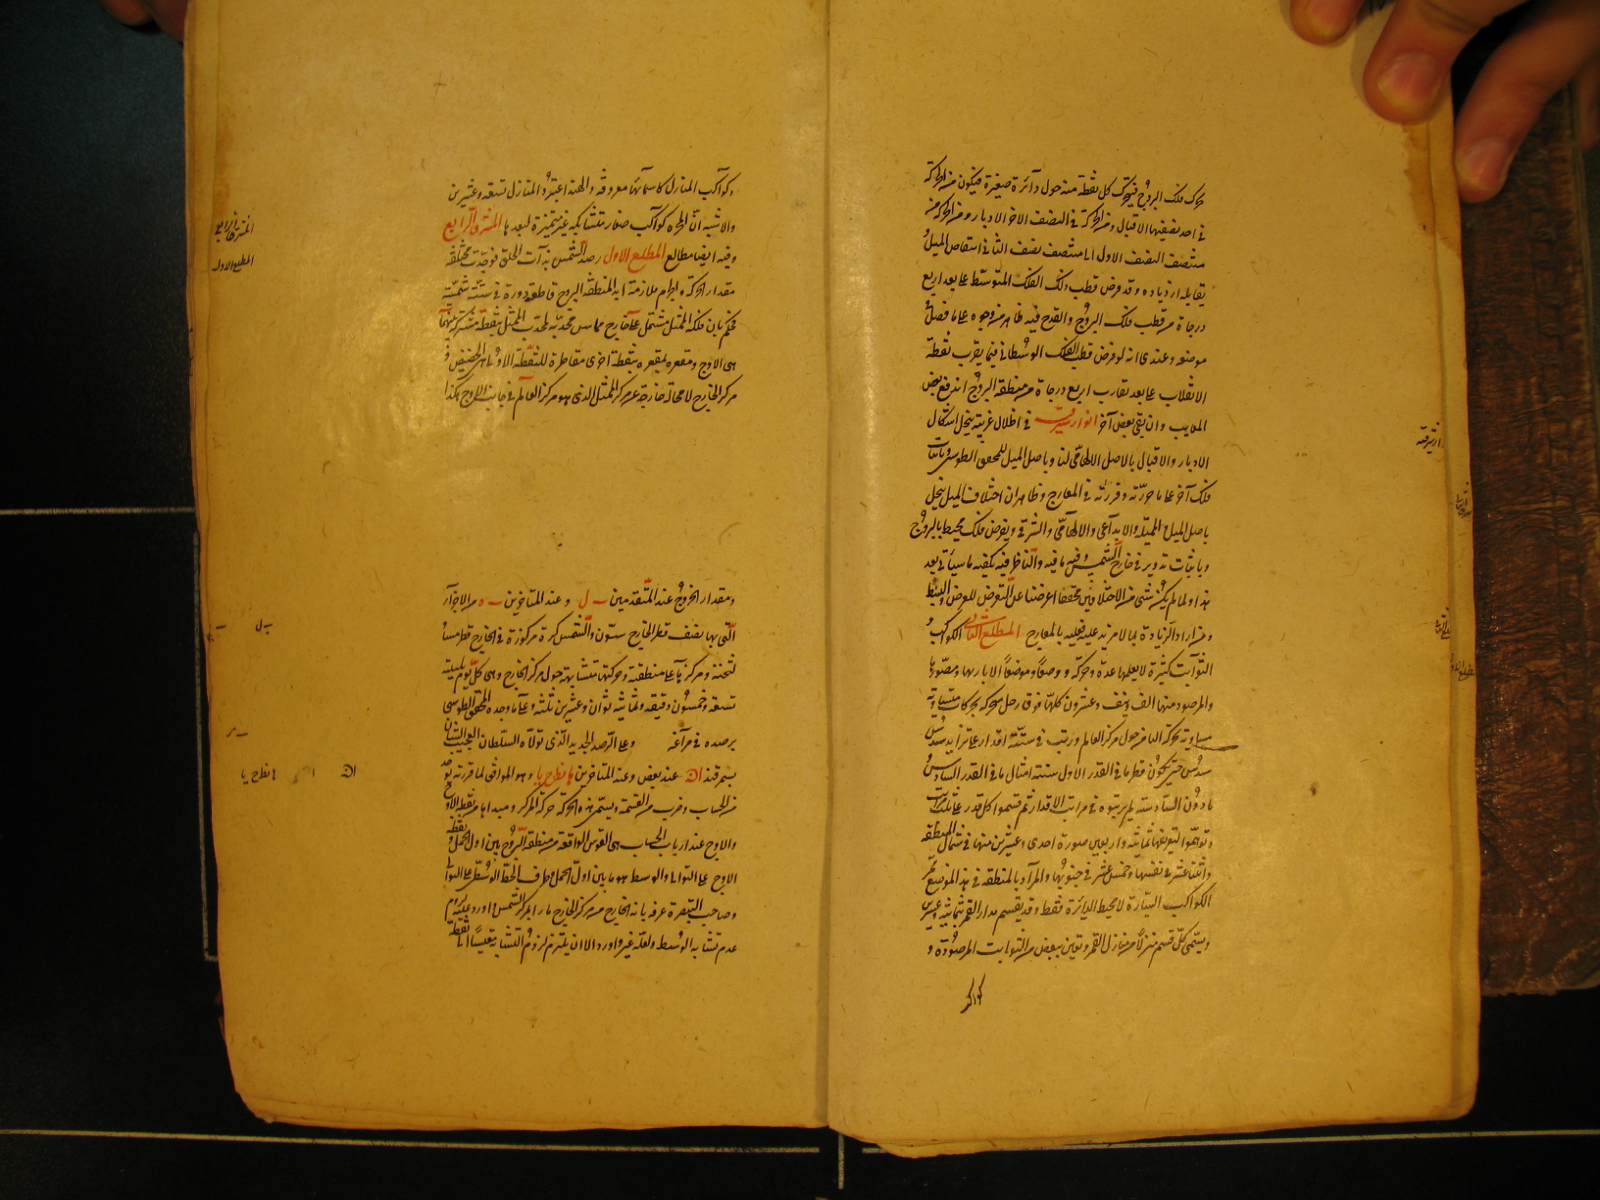 حركة فلك البروج فيتحرك كل نقطة منه حول دائرة صغيرة فيكون من الحركة
في احد نصفيها الاقبال ومن الحركة في النصف الاخر الادبار ومن الحركة من
منتصف النصف الاول الى منتصف نصف الثاني انتقاص الميل و
يقابله ازدياده وقد فرض قطب ذلك الفلك المتوسط على بعد اربع
درجات من قطب فلك البروج والقدح فيه ظاهر من وجوه على ما فصل في
موضعه وعندى انه لو فرض قطب الفلك الوسطانى فيما يقرب نقطة
الانقلاب على بعد تقارب اربع درجات من منطقة البروج اندفع بعض
المعايب وان بقى بعض آخر انوار شرقية في اظلال غربية ينحل اشكال
الادبار والاقبال بالاصل الالهامى لنا وباصل الميل للمحقق الطوسى وباثبات
فلك آخر على ما حررته وقررته في المعارج وظاهر ان اختلاف الميل ينحل
باصل الميل المميلة والابداعى والالهامى والشرقى وبفرض فلك محيط بالبروج
وباثبات تدوير في خارج الشمس وفيه ما فيه والناظر فيه يكفيه ما سيأتى بعد
هذا ولما لم يكن شئ من الاختلافين محققا اعرضنا عن التعرض للعرض والبسط
ومن اراد الزيادة لما لا مزيد عليه فعليه بالمعارج المطلع الثانى الكواكب
الثوابت كثيرة لا يعلمها عدة وحركة ووضعا وموضعا الا باريها ومصورها
والمرصود منها الف ونيف وعشرون كلها فوق زحل متحركة بحركات متشابهة
مساوية بحركة الثامن حول مركز العالم ورتب في ستة اقدار على تزايد سدس
سدس حتى يكون قطر ما في القدر الاول ستة امثال ما في القدر السادس
ما دون السادسة لم يرتبوه في مراتب الاقدار ثم قسموا كل قدر على ثلث مراتب
وتوهموا لتعريفها ثمانية واربعين صورة احدى وعشرين منها في شمال المنطقة
واثنتا عشرة في نفسها وخمس عشرة في جنوبها والمراد بالمنطقة في هذا الموضع ممر
الكواكب السيارة لا محيط الدائرة فقط وقد يقسم مدار القمر ثمانية وعشرين
ويسمى كل قسم منزلا من منازل القمر وتعين ببعض من الثوابت المرصودة و
كواكب
وكواكب المنازل كاسمائها معروفة والهند اعتبروا المنازل سبعة وعشرين
والاشبه ان المجرة كواكب صغار متشابكة غير متميزة لبعدها المشرق الرابع
وفيه ايضا مطالع المطلع الاول رصد الشمس بذات الحلق فوجدت مختلفة
مقدار الحركة والجرم ملازمة ابدا لمنطقة البروج قاطعة دورة في سنة شمسية
فحكم بان فلكه الممثل مشتمل على خارج مماس محدبه لمحدب الممثل بنقطة مشتركة بينهما
هى الاوج ومقعره بمقعره بنقطة اخرى مقاطرة للنقطة الاولى هى الحضيض
مركز الخارج لا محالة خارجة عن مركز الممثل الذى هو مركز العالم في جانب الاوج هكذا
ومقدار الخروج عند المتقدمين ب ل وعند المتأخرين ب ه من الاجزاء
التى بها نصف قطر الخارج ستون والشمس كرة مركوزة في الخارج قطر مساو
لثخنه ومركزها على منطقته وحركتها متشابهة حول مركز الخارج وهى كل يوم بليلته
تسعة وخمسون دقيقة وثمانية ثوان وعشرين ثلثة وعلى ما وجده المحقق الطوسى
برصده في مراغه وعلى الرصد الجديد الذى تولاه السلطان
بسمرقند عند بعض وعند المتأخرين نط ح يا وهو الموافق لما قررته
من الحساب وضرب من القسمة ويسمى هذه الحركة حركة المركز ومبداها من نقطة الاوج
والاوج عند ارباب الحساب هى القوس الواقعة من منطقة البروج بين اول الحمل ونقطة
الاوج على التوالى والوسط هو ما بين اول الحمل وطرف الخط الوسطى على التوالى
وصاحب التبصرة عرفه بانه الخارج من مركز الخارج مارا بمركز الشمس واورد عليه لزوم
عدم تشابه الوسط ولعله غير وارد الا ان يلتزم لزوم التشابه مقيسا الى نقطة
المشرق الرابع
المطلع الاول